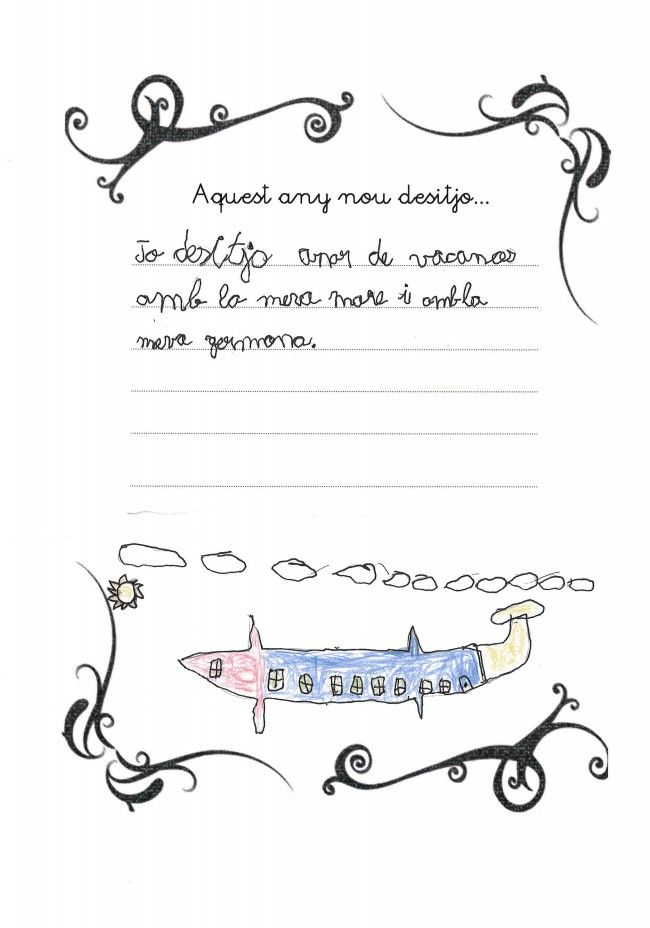 Aquest any nou desitjo...
Jo desitjo anar de vacances
amb la meva mare i ambla
meva germana.